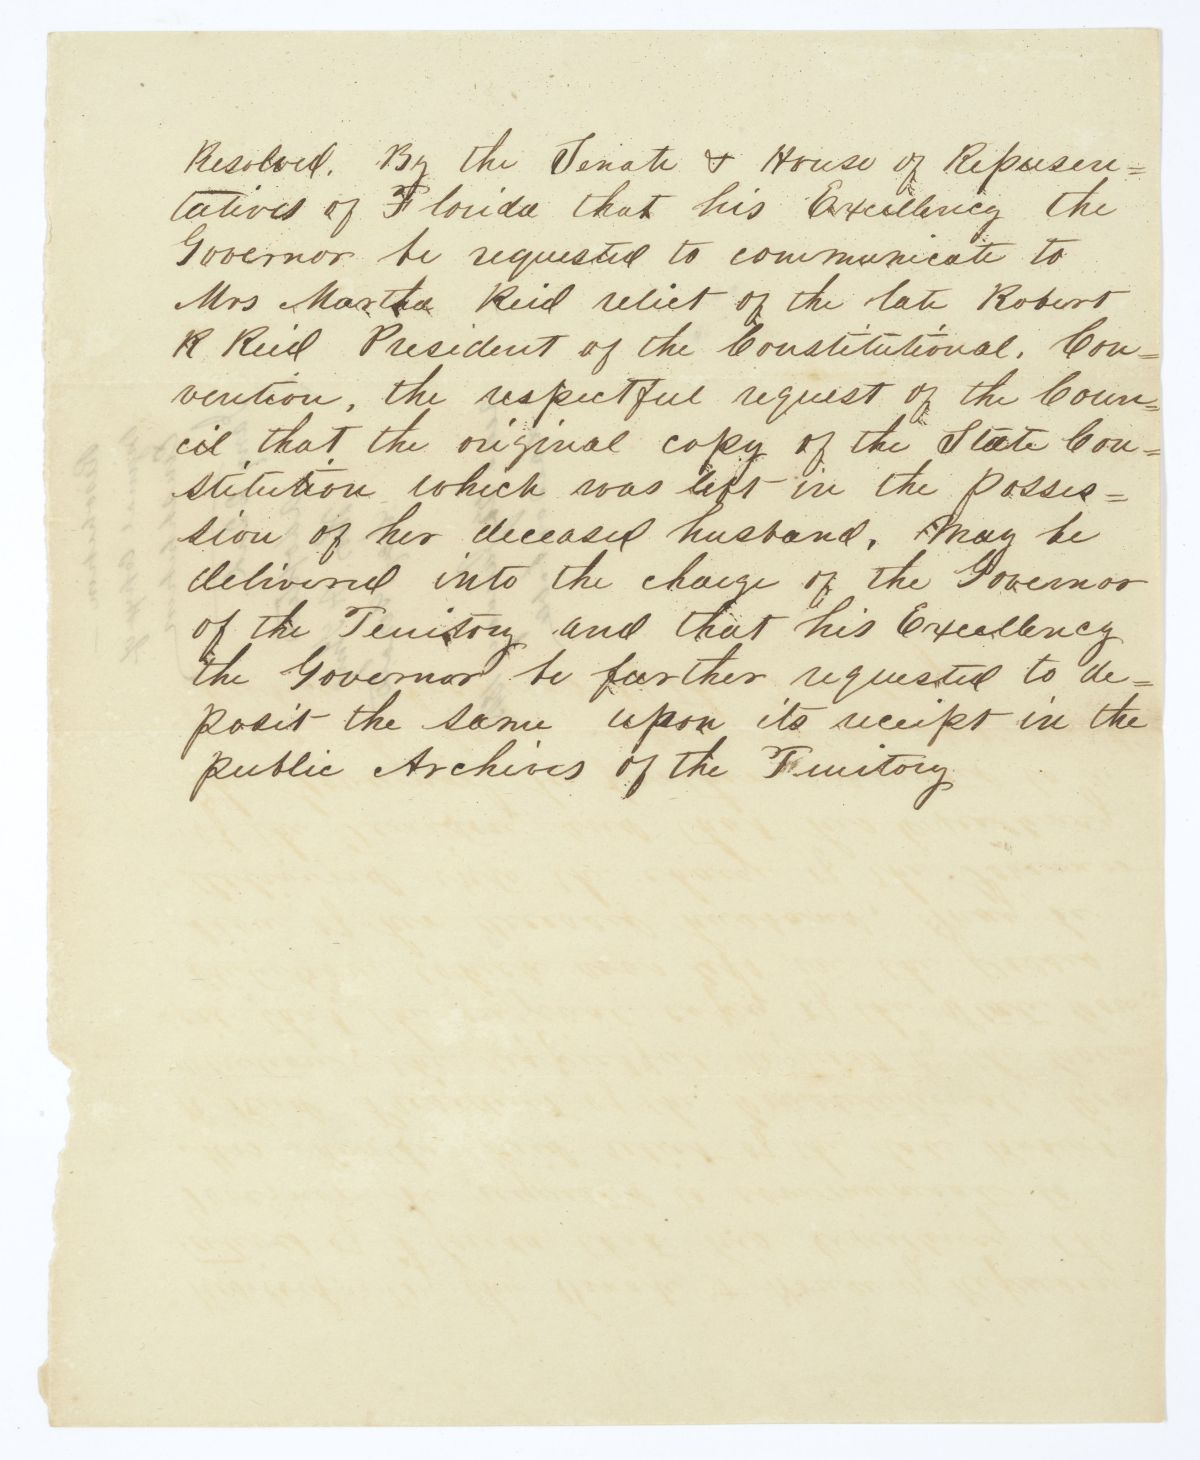 Resolved. By the Senate & House of Represen=
tatives of Florida that his Excellency the
Governor be requested to communicate to
Mrs Martha Reid relict of the late Robert
R Reid President of the Constitutional. Con=
vention, the respectful request of the Coun=
cil that the original copy of the State Con=
stitution which was left in the posses=
sion of her deceased husband, may be
delivered into the charge of the Governor
of the Territory and that his Excellency
the Governor be further requested to de=
posit the same upon its receipt in the
public Archives of the Territory